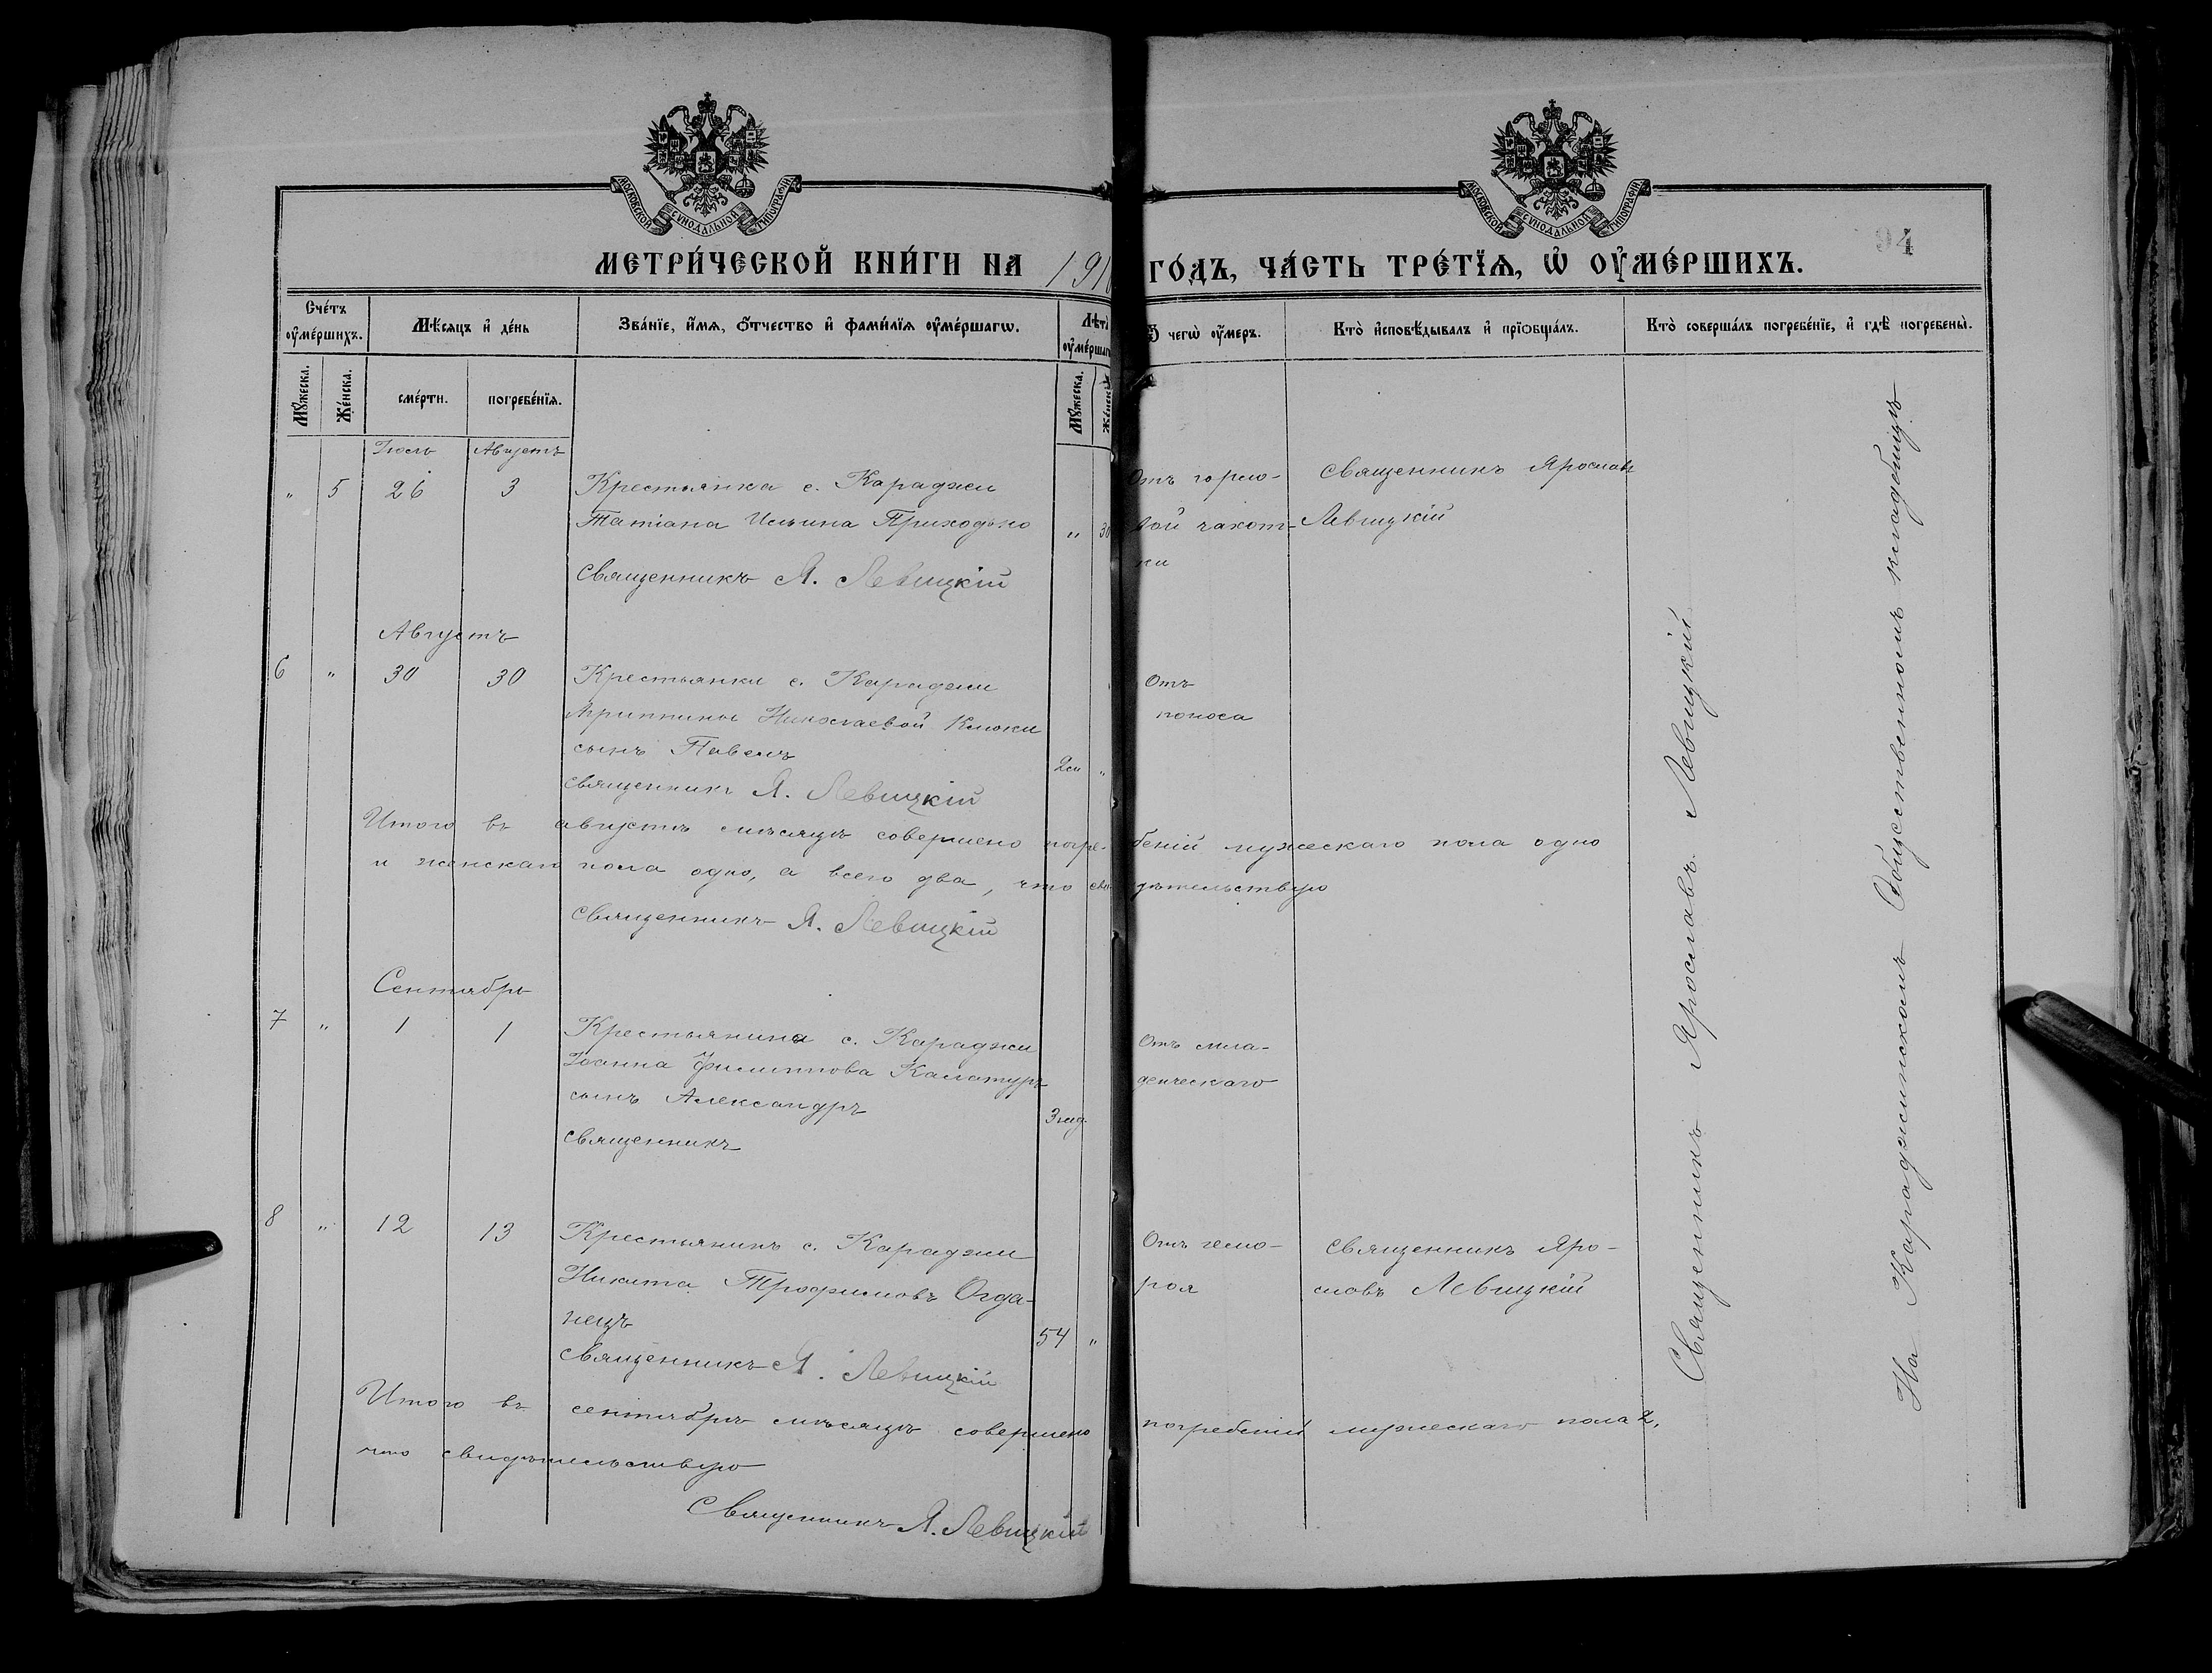 МОСКОВСКОЙ СѴНОДАЛЬНОЙ ТИПОГРАФІИ.
МОСКОВСКОЙ СѴНОДАЛЬНОЙ ТИПОГРАФІИ.
94
МЕТРИ́ЧЕСКОЙ КНИ́ГИ НА 191
ГО́ДЪ, ЧА́СТЬ ТРЕ́ТЇѦ, Ѡ҆ ОУ҆МЕ́РШИХЪ.
Сче́тъ оу҆ме́ршихъ.
Мѣ́сяцъ и҆ де́нь
Зва́нїе, и҆́мѧ, ѻ҆́тчество и҆ фами́лїѧ оу҆ме́ршагѡ.
Лѣта̀ оу҆ме́ршагѡ
Ѿ чегѡ̀ оу҆́меръ.
Кто̀ и҆сповѣ́дывалъ и҆ прїѡбща́лъ.
Кто̀ соверша́лъ погребе́нїе, и҆ гдѣ̀ погребены̀.
Мꙋ́жеска.
Же́нска.
сме́рти.
погребе́нїѧ.
Мꙋ́жеска.
Же́нска
Іюль Августъ
" 5 26 3 Крестьянка с. Караджи
Татіана Ильина Приходько " 30
Священникъ Я. Левицкій
Отъ горло-
вой чахот-
ки
Священникъ Ярославъ
Левицкій
Августъ
6 " 30 30 Крестьянки с. Караджи
Агриппины Николаевой Клюки
сынъ Павелъ 2м "
Священникъ Я. Левицкій
Отъ
поноса
Итого въ августѣ мѣсяцѣ совершено погре- беній мужескаго пола одно
и женскаго пола одно, а всего два, что сви дѣтельствую
Священникъ Я. Левицкій
Сентябрь
7 " 1 1 Крестьянина с. Караджи
Іоанна Филиппова Калатуръ
сынъ Александръ 3нед.
Священникъ
Отъ мла-
денческаго
8 " 12 13 Крестьянинъ с. Караджи
Никита Трофимовъ Огда-
нецъ 54 "
Священникъ Я. Левицкій
Отъ гемо-
роя
Священникъ Яро-
славъ Левицкій
Итого въ сентябрѣ мѣсяцѣ совершено погребеній мужескаго пола 2,
что свидѣтельствую
Священникъ Я. Левицкій
Священникъ Ярославъ Левицкій
На Караджинскомъ Общественномъ кладбищѣ